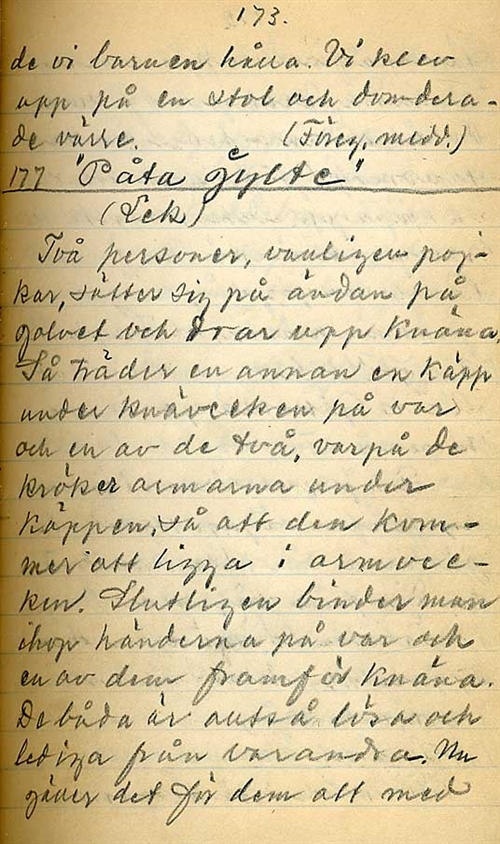 173.
de vi barnen hålla. Vi klev
upp på en stol och domdera-
de värre. (Föreg. medd.)
177 "Påta gylte"
(Lek)
Två personer, vanligen poj-
kar, sätter sig på ändan på
golvet och drar upp knäna.
Så träder en annan en käpp
under knävecken på var
och en av de två, varpå de
kröker armarna under
käppen, så att den kom-
mer att ligga i armvec-
ken. Slutligen binder man
ihop händerna på var och
en av dem framför knäna.
De båda är alltså lösa och
lediga från varandra. Nu
gäller det för dem att med